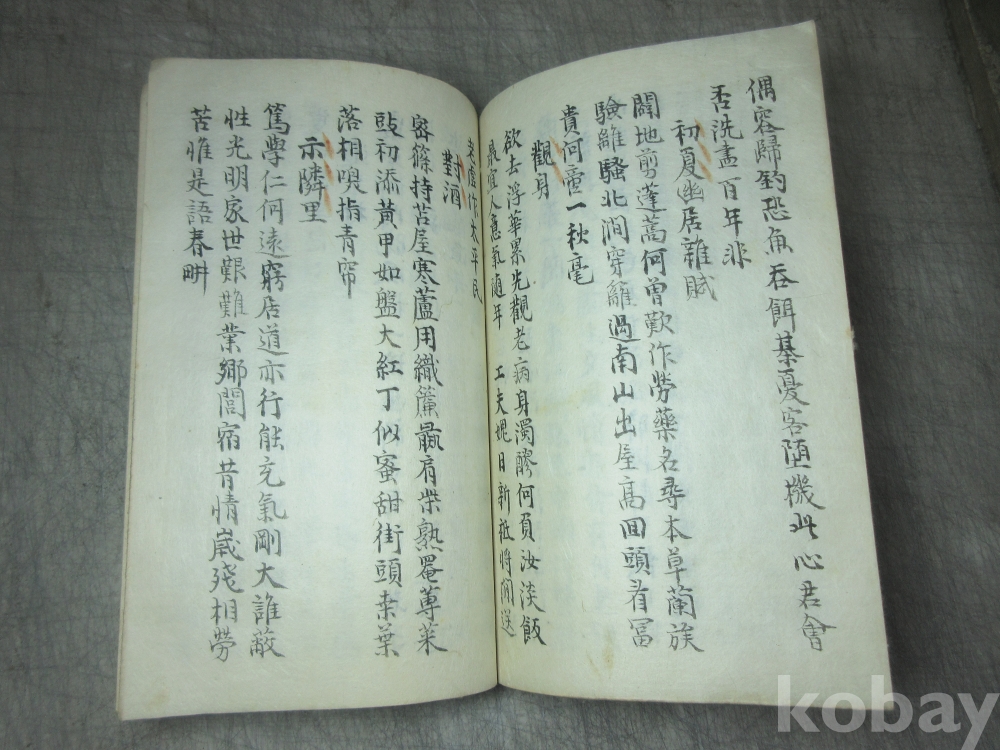 偶容歸釣恐魚吞餌棊憂客墮機此心君會
否洗盡百年非
初夏幽居雜賦
闢地剪蓬蒿何曾歎作勞藥名尋本草蘭族
驗離騷北澗穿籬過南山出屋高回頭看冨
貴何啻一秋毫
觀身
欲去浮華累先觀老病身濁醪何負汝淡飯
最宜人意氣隨年 工夫媿日新祗將閑送
老虛作太平民
對酒
密篠持苫屋寒蘆用織簾彘肩柴熟罨蓴菜
豉初添黃甲如盤大紅丁似蜜甜街頭桒葉
落相嗅指青帘
示隣里
篤學仁何遠窮居道亦行能充氣剛大誰蔽
性光明家世艱難業鄉閭宿昔情歲殘相勞
苦惟是語春畊
kobay